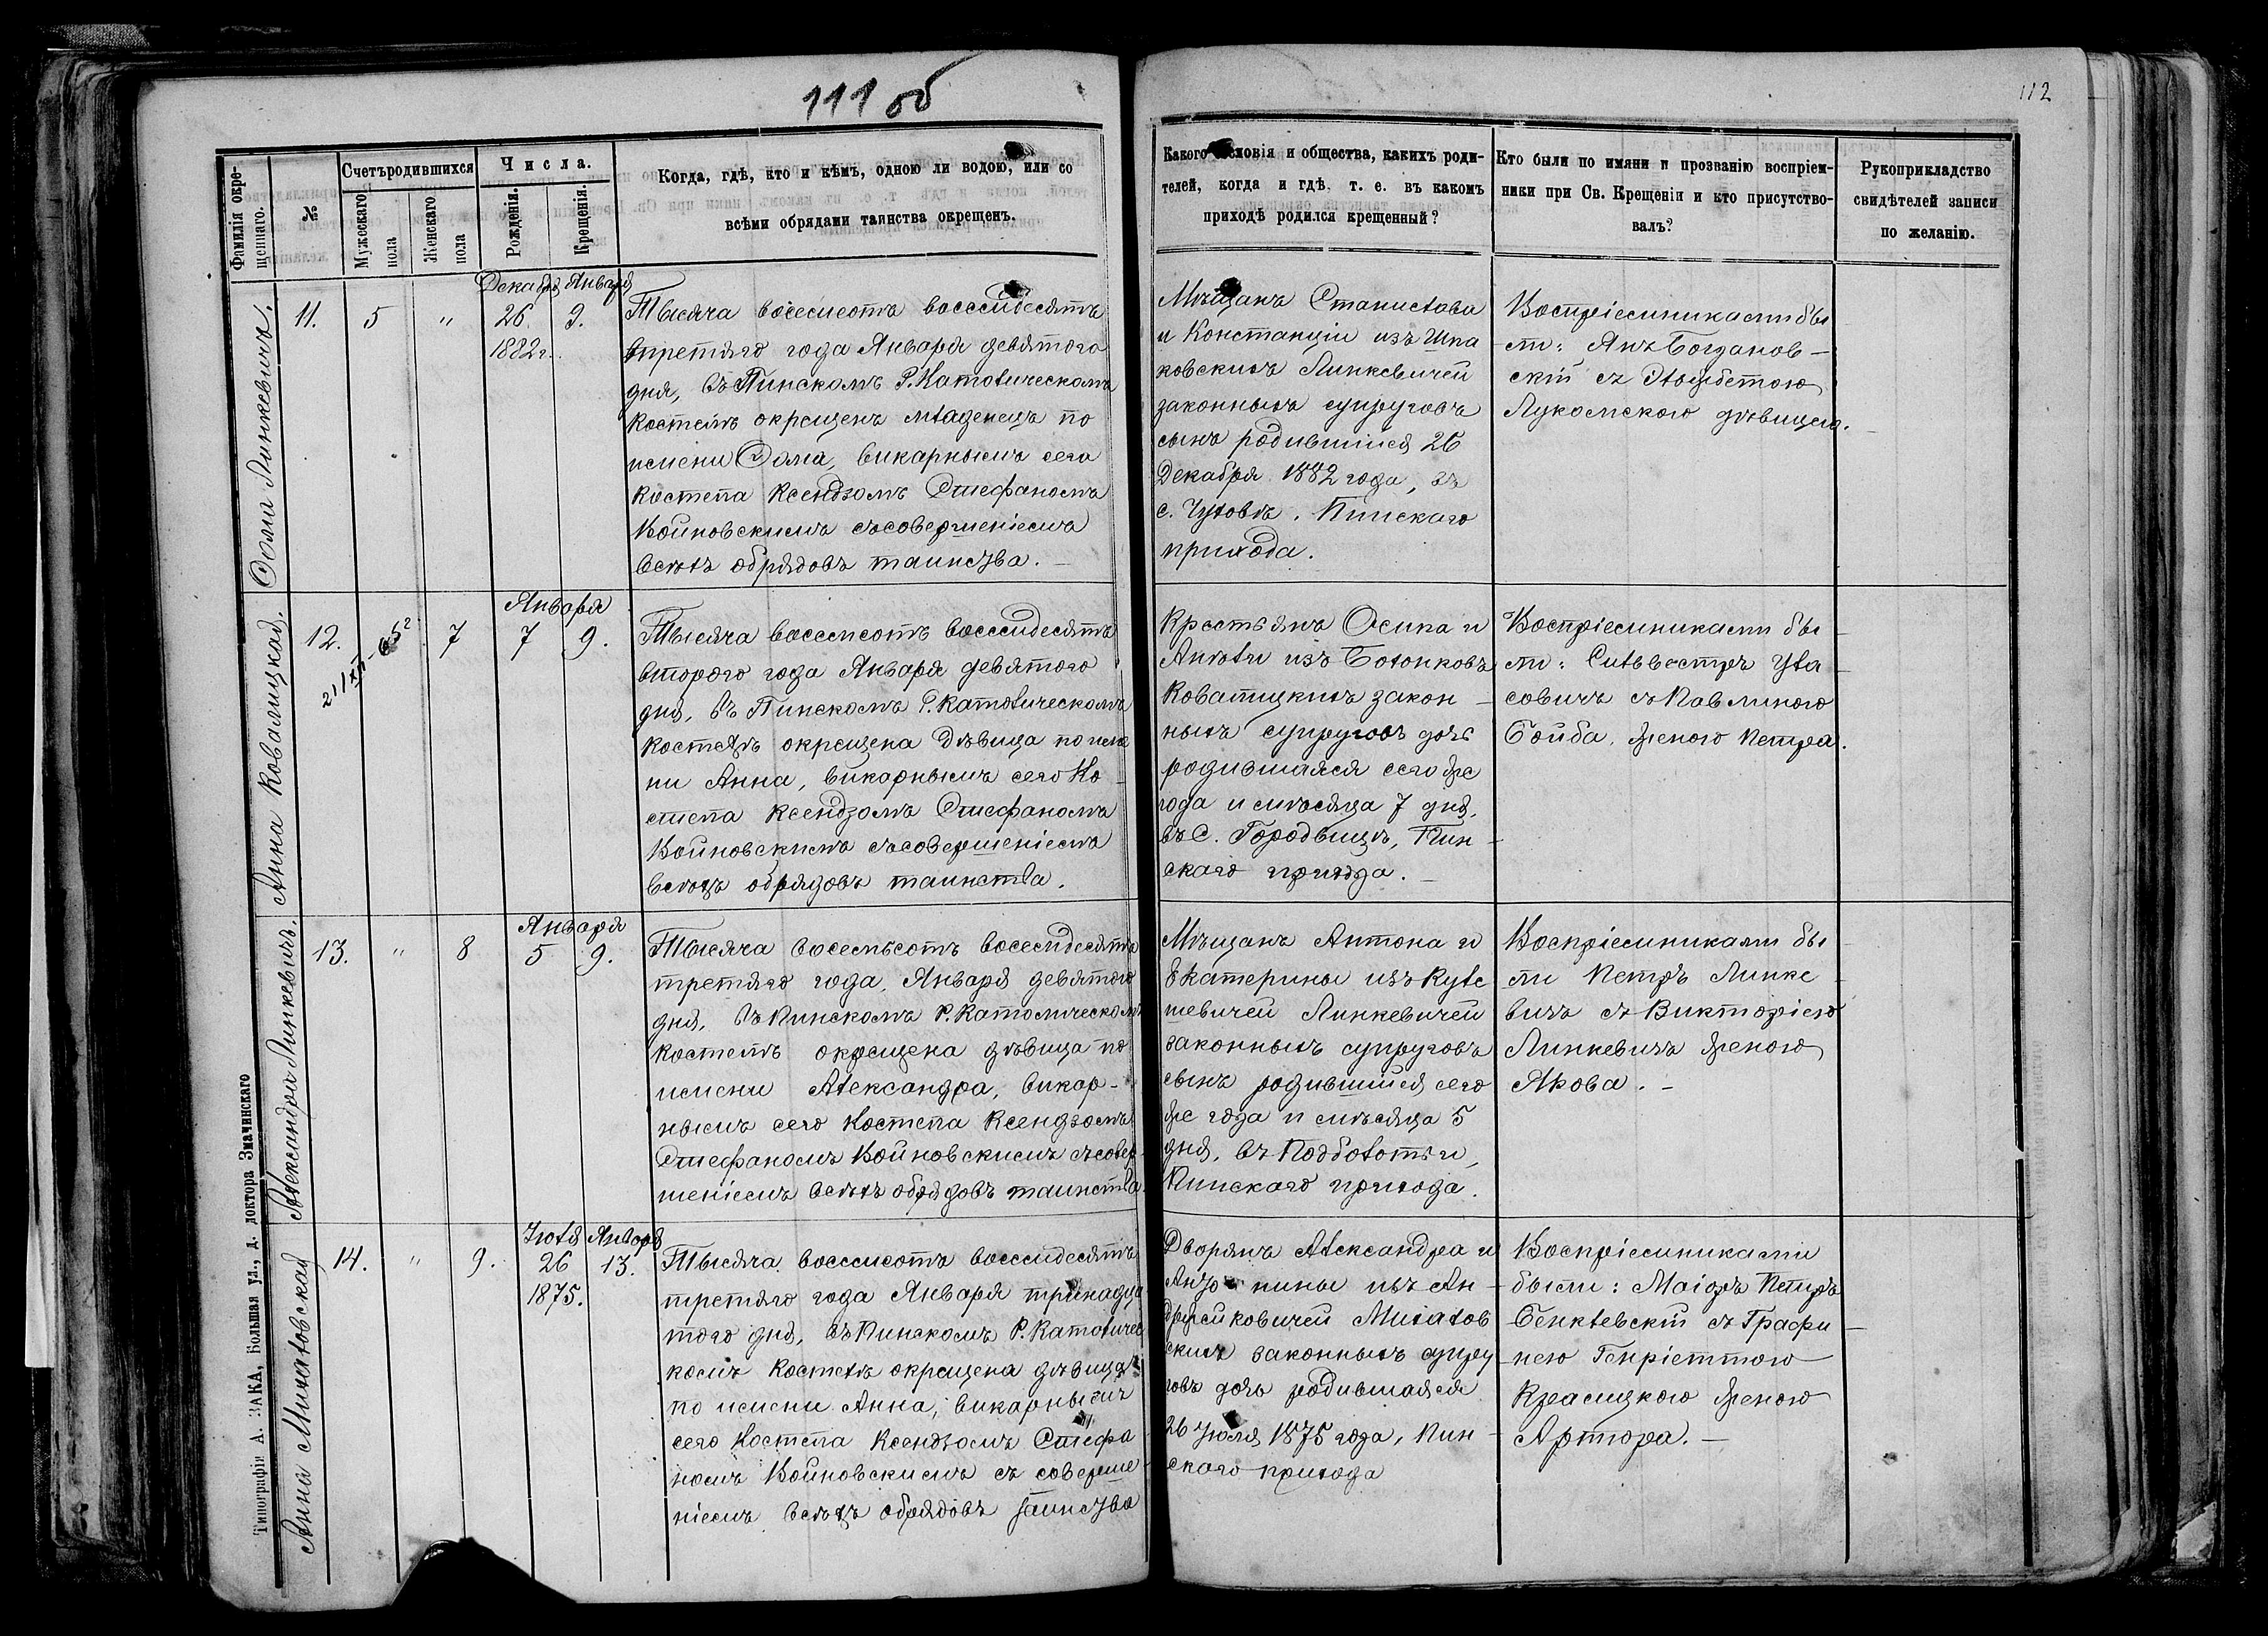 111 об
112
Фамилія окре-
щеннаго.
№
Счетъ родившихся
Мужескаго
пола
Женскаго
пола
Числа.
Рожденія.
Крещенія.
Когда, гдѣ, кто и кѣмъ, одною ли водою, или со
всѣми обрядами таинства окрещенъ.
Какого сословія и общества, какихъ роди-
телей, когда и гдѣ, т. е. въ какомъ
приходѣ родился крещенный?
Кто были по имяни и прозванію воспріем-
ники при Св. Крещеніи и кто присутство-
валъ?
Рукоприкладство
свидѣтелей записи
по желанію.
Ѳома Линкевичъ.
11.
5
"
Декабря
26.
1882 г.
Января
9.
Тысяча восемсотъ восемдесятъ
третяго года Января девятого
дня, въ Пинскомъ Р. Католическомъ
костелѣ окрещенъ младенецъ по
имени Ѳома, викарнымъ сего
костела Ксендзомъ Стефаномъ
Войновскимъ съ совершеніемъ
всѣхъ обрядовъ таинства.
Мѣщанъ Станислава
и Констанціи изъ Шпа
ковскихъ Линкевичей
законныхъ супруговъ
сынъ родившійся 26
Декабря 1882 года, въ
с. Чуховѣ, Пинскаго
прихода.
Воспріемниками бы
ли: Янъ Богданов-
скій съ Эльжбетою
Лукомскою дѣвицею.
Анна Ковалицкая.
12.
7
Января
7
9.
Тысяча восемсотъ восемдесятъ
второго года Января девятого
дня, въ Пинскомъ Р. Католическомъ
костелѣ окрещена дѣвица по име
ни Анна, викарнымъ сего Ко-
стела Ксендзомъ Стефаномъ
Войновскимъ съ совершеніемъ
всѣхъ обрядовъ таинства.
Крестьянъ Осипа и
Анѣли изъ Болонковъ
Ковалицкихъ закон-
ныхъ супруговъ дочь
родившаяся сего же
года и мѣсяца 7 дня,
въ С. Городвищѣ, Пин-
скаго прихода.
Воспріемниками бы
ли: Сильвестръ Ула
совичъ съ Павлиною
Бойба, женою Петра.
Александра Линкевичъ.
13.
"
8
Января
5
9.
Тысяча восемьсотъ восемдесятъ
третяго года, Января девятого
дня, въ Пинскомъ Р. Католическомъ
костелѣ окрещена дѣвица по
имени Александра, викар-
нымъ сего Костела Ксендзомъ
Стефаномъ Войновскимъ съ совер-
шеніемъ всѣхъ обрядовъ таинства.
Мѣщанъ Антона и
Екатерины изъ Куле
шевичей Линкевичей
законныхъ супруговъ
сынъ родившійся сего
же года и мѣсяца 5
дня, въ Подболотьи,
Пинскаго прихода.
Воспріемниками бы
ли Петръ Линке
вичъ съ Викторіею
Линкевичъ женою
Якова. -
Анна Михаловская
14.
"
9.
Іюля
26
1875.
Января
13.
Тысяча восемсотъ восемдесятъ
третяго года Января тринадца
того дня, въ Пинскомъ Р. Католичес
комъ Костелѣ окрещена дѣвица
по имени Анна, викарнымъ
сего Костела Ксендзомъ Стефа
номъ Войновскимъ съ соверше
ніемъ всѣхъ обрядовъ таинства
Дворянъ Александра и
изъ Ан-
дрейковичей Михалов
скихъ законныхъ супру
говъ дочь родившаяся
26 Іюля 1875 года, Пин-
скаго прихода
Воспріемниками
были: Маіоръ Петръ
Бенклевскій съ Графи
нею Генріеттою
Красицкою женою
Артюра. -
Типографія А. ЗАКА, Большая ул., д. доктора Змачинскаго